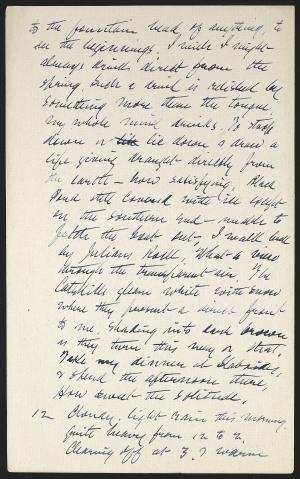 to the fountain head of anything, to
see the beginnings. I wish I might
always drink direct from the
spring. Such a drink is relished by
something more than the tongue,
my whole mind drinks. To stoop
down or lie down & draw a
life giving draught directly from
the earth - how satisfying. Black
Pond still covered with ice except
on the southern end - unable to
get the boat out - I walk back
by Julians Rock. What a view
through the transparent air. The
Catskills gleam white with snow
where they present a direct front
to me, shading into dark brown
as they turn this way or that.
Take my dinner at Slabsides,
& spend the afternoon there,
How sweet the solitude.
12 Cloudy, light rain this morning.
Quite heavy from 12 to 2.
Clearing off at 3. ? warm